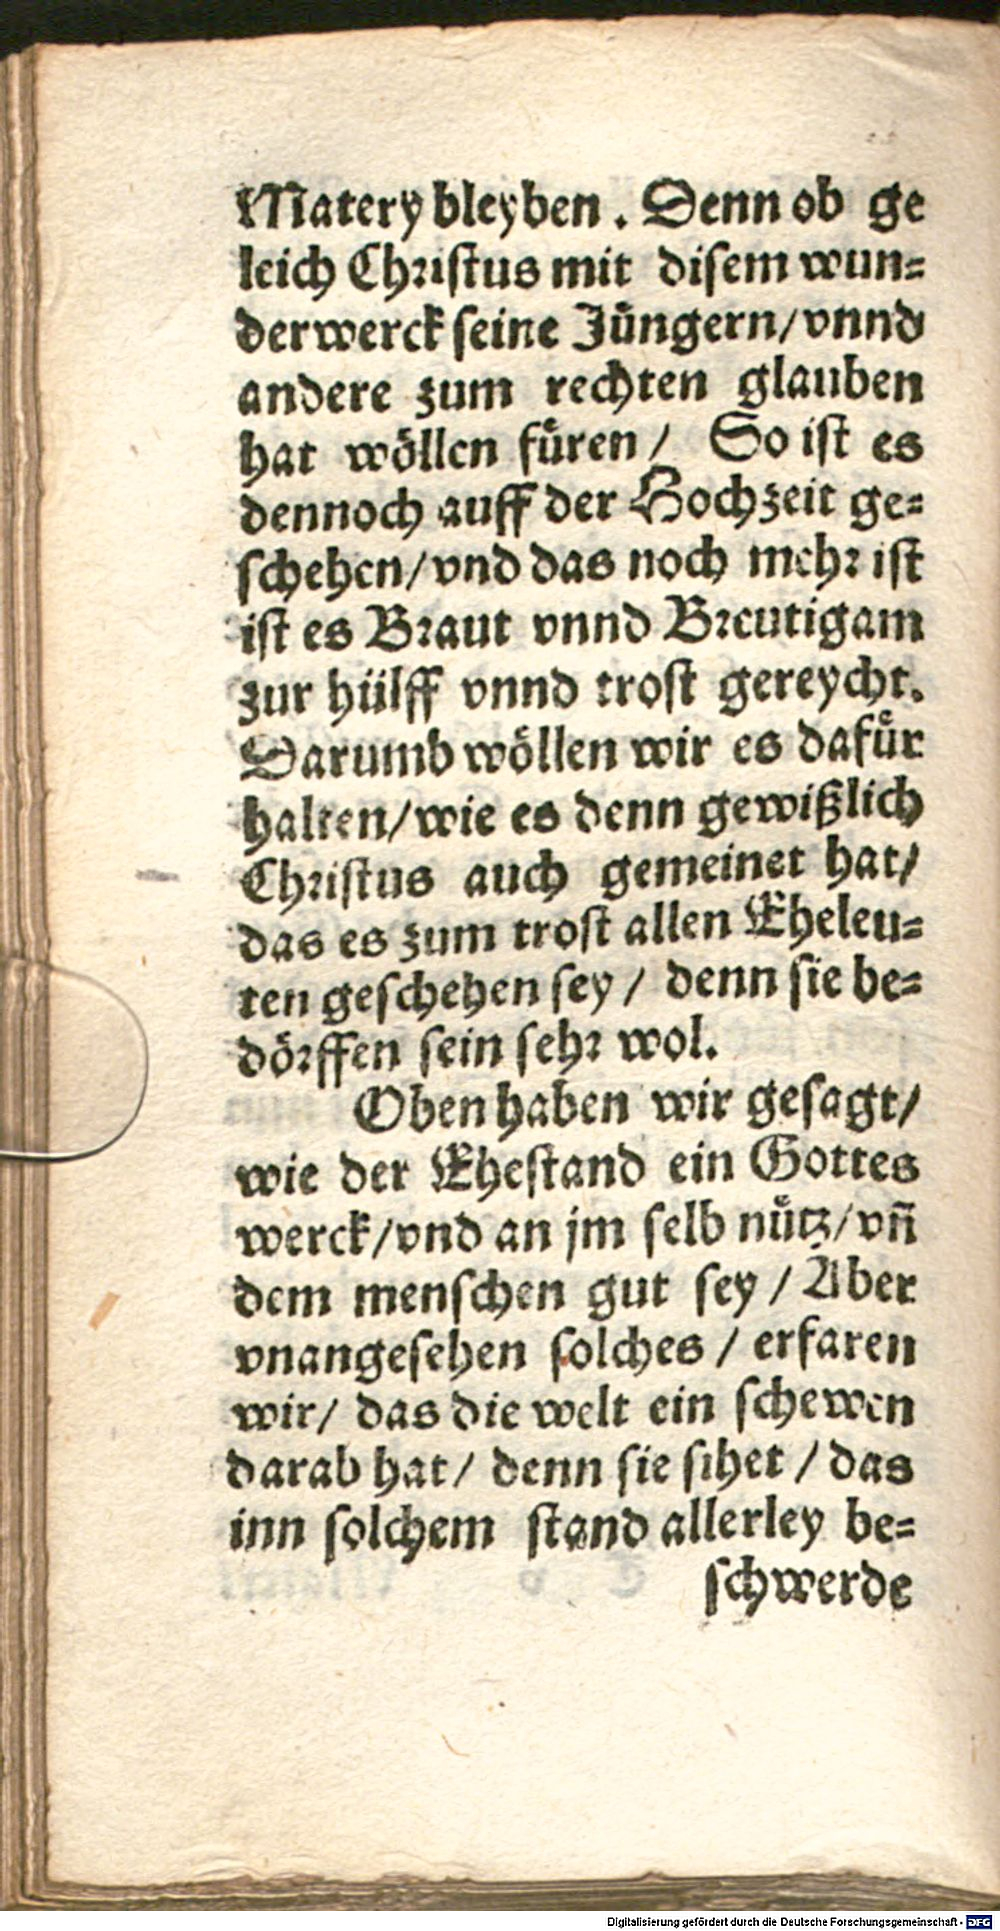 Matery bleyben. Denn ob ge
leich Christus mit disem wun-
derwerck seine Jüngern/vnnd
andere zum rechten glauben
hat wöllen füren/ So ist es
dennoch auff der Hochzeit ge-
schehen/vnd das noch mehr ist
ist es Braut vnnd Breutigam
zur hülff vnnd trost gereycht.
Darumb wöllen wir es dafür
halten/wie es denn gewißlich
Christus auch gemeinet hat/
das es zum trost allen Eheleu-
ten geschehen sey/ denn sie be-
dörffen sein sehr wol.
Oben haben wir gesagt/
wie der Ehestand ein Gottes
werck/vnd an jm selb nütz/vñ
dem menschen gut sey/Aber
vnangesehen solches/ erfaren
wir/ das die welt ein schewen
darab hat/ denn sie sihet/das
inn solchem stand allerley be-
schwerde
Digitalisierung gefördert durch die Deutsche Forschungsgemeinschaft - DFG